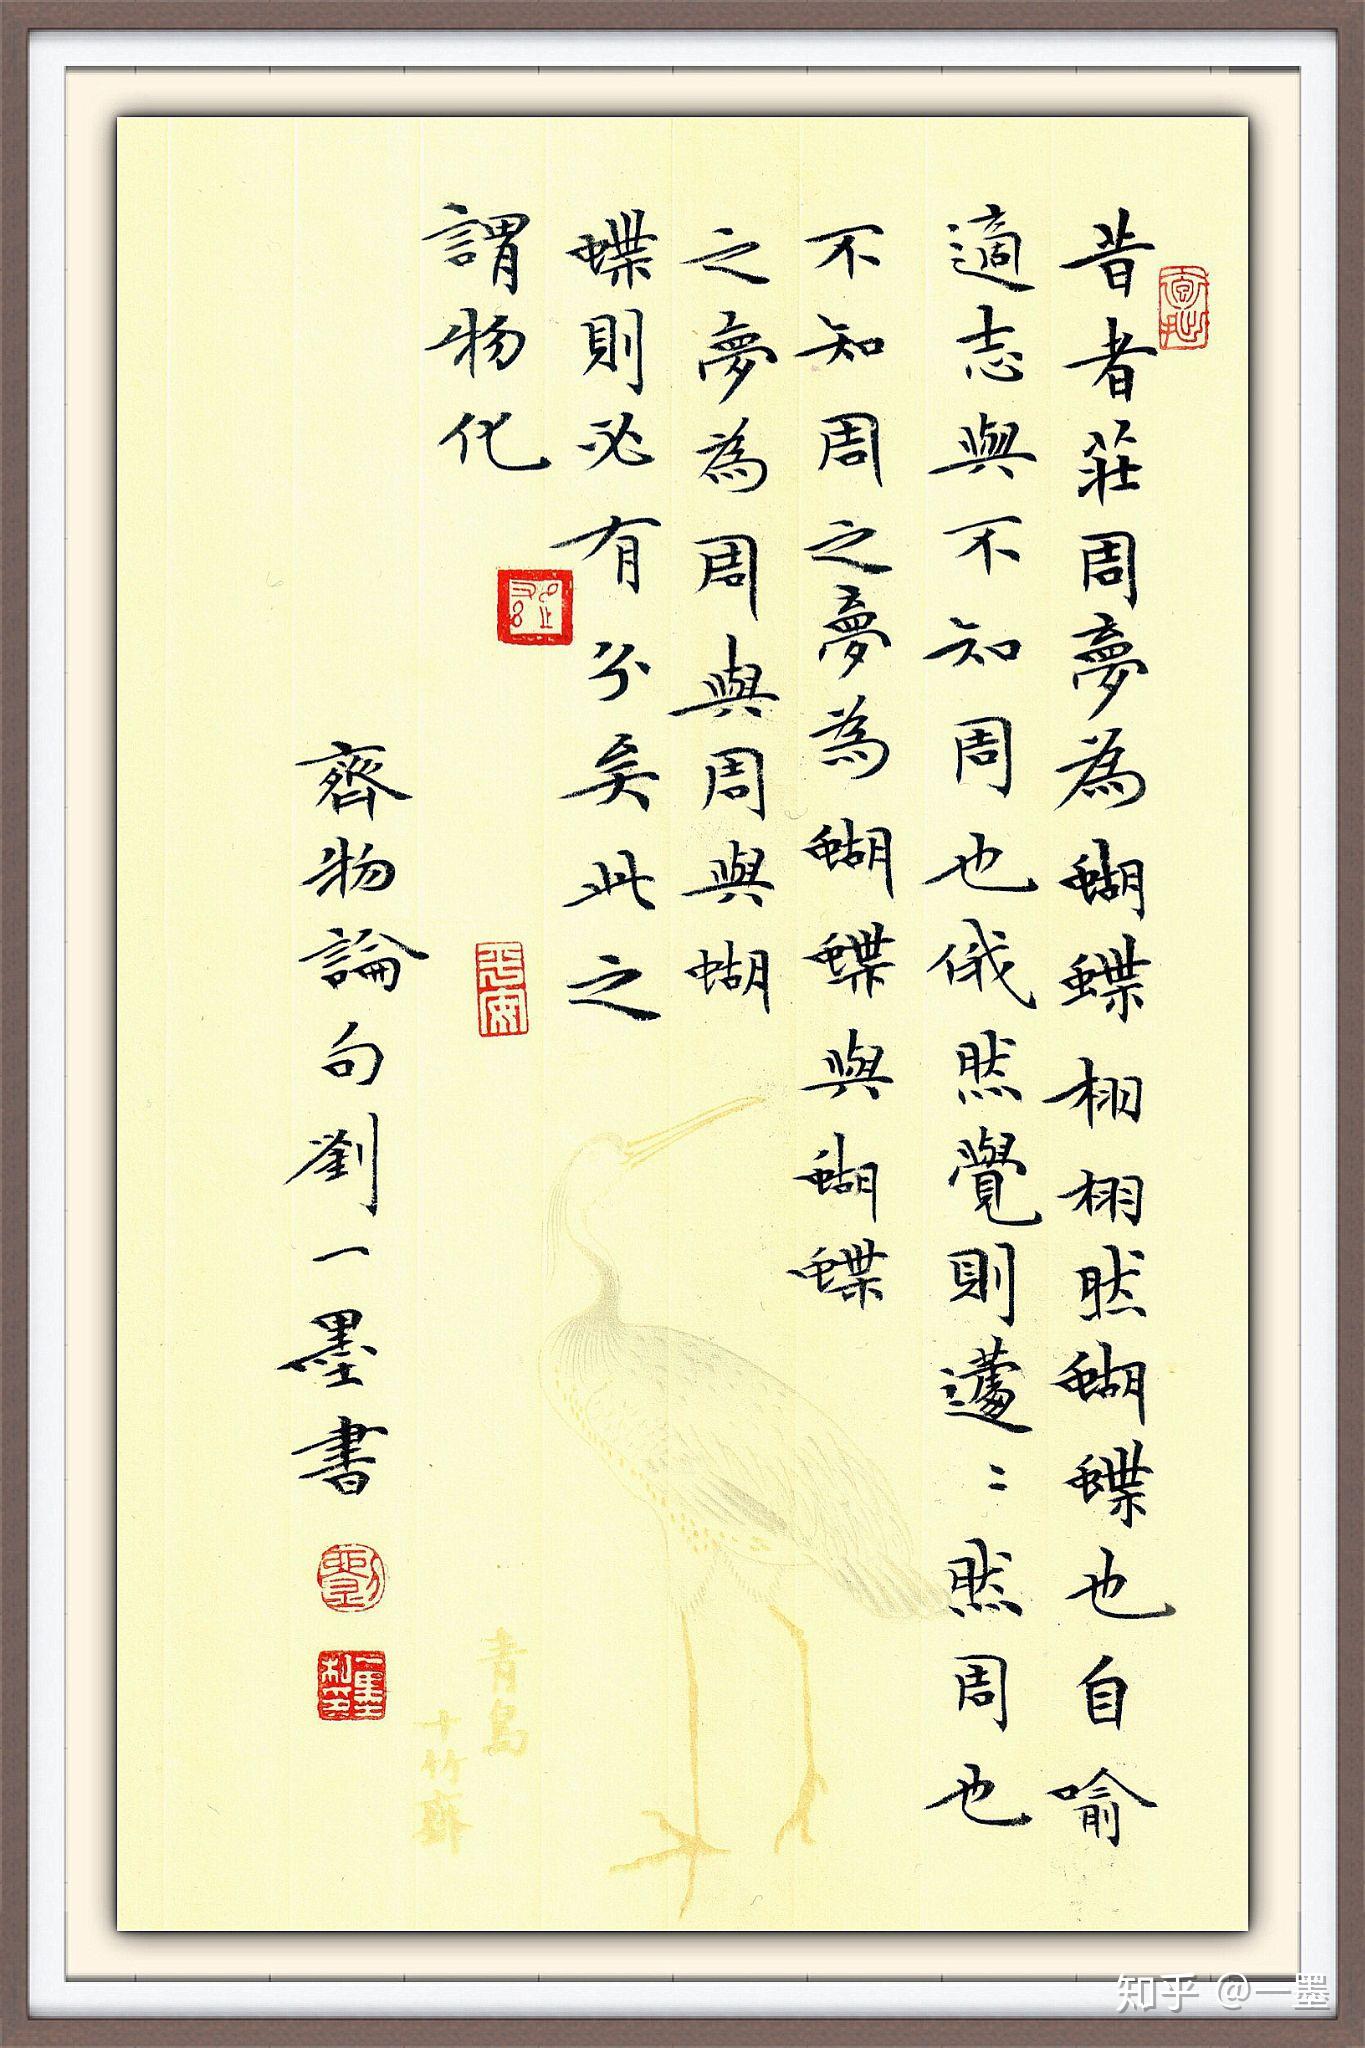 昔者莊周夢為蝴蝶栩栩然蝴蝶也自喻
適志與不知周也俄然覺則蘧〻然周也
不知周之夢為蝴蝶與蝴蝶
之夢為周與周與蝴
蝶則必有分矣此之
謂物化
齊物論句劉一墨書
青鳥
十竹齋
知乎 @一墨